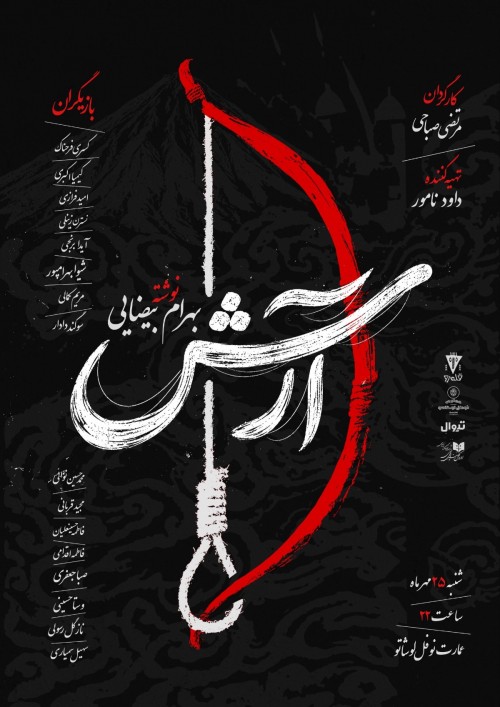 کارگردان
مرتضی صباحی
تهیه‌کننده
داود نامور
بازیگران
کسری فرحناک
کیمیا اکبری
امید فرازی
نسترن بزعلی
آیدا برنجی
شیوا بهرامپور
مریم کمالی
سوگند دادار
نوشته
بهرام بیضایی
آرش
محمدحسین خوانی
مجید قربانی
فاطمه اقدامی
صبا جعفری
وستا حسینی
نازگل رسولی
سهیل سیاری
تیوال
شنبه ۲۵ مهرماه
ساعت ۲۲
عمارت نوفل لوشاتو